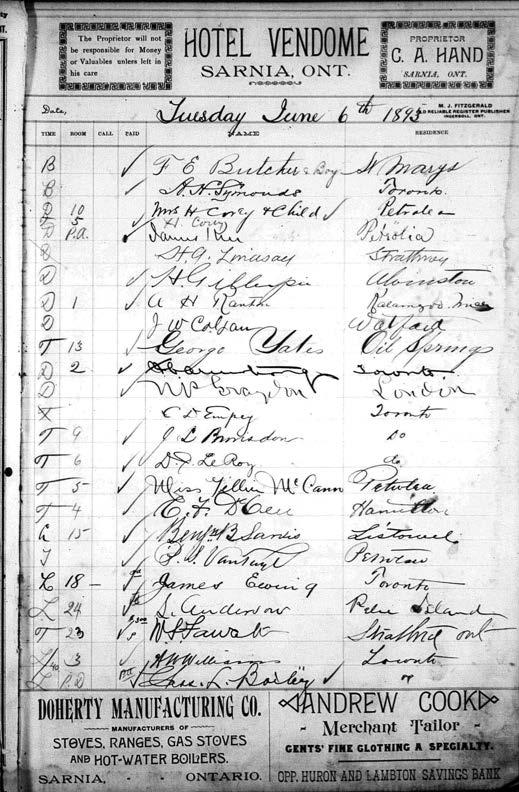 The Proprietor will not
be responsible for Money
or Valuables unless left in
his care
HOTEL VENDOME
SARNIA, ONT.
PROPRIETOR
C. A. HAND
SARNIA, ONT.
M. J. FITZGERALD
RELIABLE REGISTER PUBLISHER
INGERSOLL, ONT.
Date, Tuesday June 6th 1893
TIME ROOM CALL PAID NAME RESIDENCE
B F E Butcher & Boy St Marys
B Symonds Toronto
D 10 Mrs H Corey & Child Petrolea
T 5 H. Corey
D P.a. Petrolia
D H. G. Lindsay Strathroy
D H Gillespie Alvinston
D 1 A H Kalamazoo
D J W Watford
T 13 George Yates Oil Springs
D 2 Toronto
D London
C D Empey Toronto
T 9 J L do
T 6 D. J. LeRoy do
T 5 Miss McCann Petrolea
T 4 Hamilton
15 Listowel
L 18 — James Ewing Toronto
L 24 S. Anderson Pelee Island
T 23 ont
3 A W Williams Toronto
L P.D Chas. L. "
DOHERTY MANUFACTURING CO.
MANUFACTURERS OF
STOVES, RANGES, GAS STOVES
AND HOT-WATER BOILERS.
SARNIA, - - ONTARIO.
ANDREW COOK
- Merchant Tailor -
GENTS' FINE CLOTHING A SPECIALTY.
OPP. HURON AND LAMBTON SAVINGS BANK